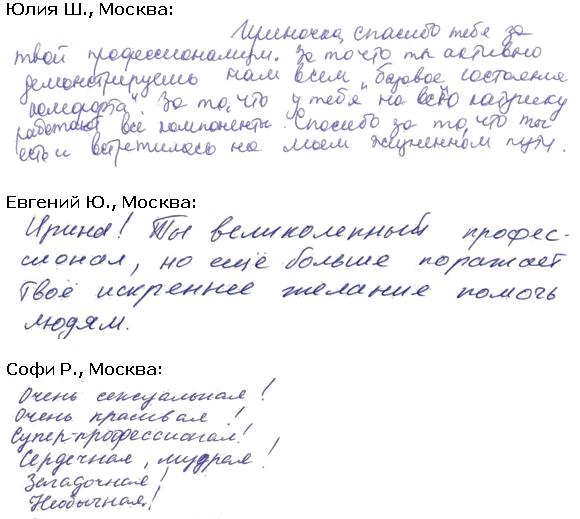 Юлия Ш., Москва:
Ириночка, спасибо тебе за
твой профессионализм. За то что ты активно
демонстрируешь нам всем „базовое состояние
комфорта". За то, что у тебя на всю катушку
работают все компоненты. Спасибо за то, что ты
есть и встретилась на моем жизненном пути.
Евгений Ю., Москва:
Ирина! Ты великолепный профес-
сионал, но ещё больше поражает
твоё искреннее желание помочь
людям.
Софи Р., Москва:
Очень сексуальная!
Очень красивая!
Супер-профессионал!
Сердечная, мудрая!
Загадочная!
Необычная!